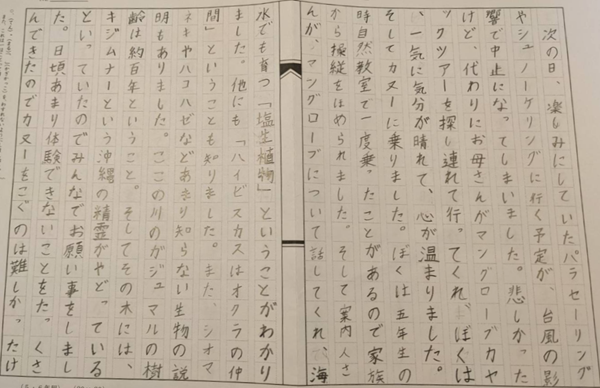 次の日、楽しみにしていたパラセーリング
やシュノーケリングに行く予定が、台風の影
響で中止になってしまいました。悲しかった
けど、代わりにお母さんがマングローブカヤ
ックツアーを探し連れて行ってくれ、ぼくは
、一気に気分が晴れて、心が温まりました。
そしてカヌーに乗りました。ぼくは五年生の
時自然教室で一度乗ったことがあるので家族
から操縦をほめられました。そして案内人さ
んが、マングローブについて話してくれ、海
水でも育つ「塩生植物」ということがわかり
ました。他にも「ハイビスカスはオクラの仲
間」ということも知りました。また、シオマ
ネキやハコハゼなどあまり知らない生物の説
明もありました。ここの川のガジュマルの樹
齢は約百年ということ。そしてその木には、
キジムナーという沖縄の精霊がやどっている
といっていたのでみんなでお願い事をしまし
た。日頃あまり体験できないことをたくさ
んできたのでカヌーをこぐのは難しかったけ